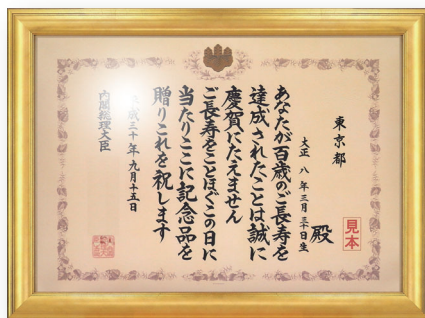 東京都
大正八年三月三十日生
殿
見本
あなたが百歳のご長寿を
達成されたことは誠に
慶賀にたえません
ご長寿をことほぐこの日に
当たりここに記念品を
贈りこれを祝します
成三十年九月十五日
内閣総理大臣